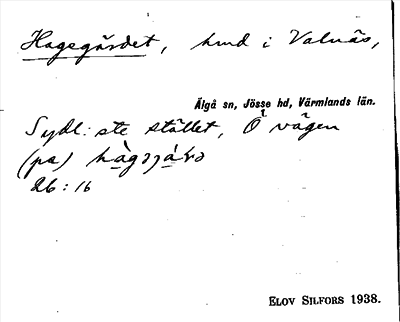 Hagegärdet, hmd i Valnäs,
Älgå sn, Jösse hd, Värmlands län.
Sydl: ste stället, Ö vägen
(pa)
26:16
ELOV SILFORS 1938.